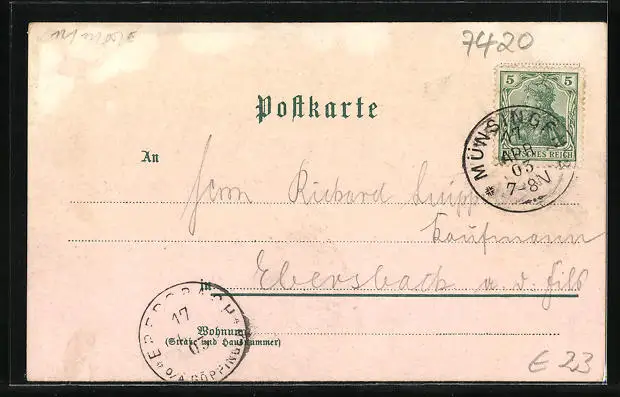 7420
5 5
DEUTSCHES REICH
MÜNSINGEN
17
APR
03
7-8V
Postkarte
An
Herrn Richard
Kaufmann
in Ebersbach a. d. Fils
Wohnung
(Straße und Hausnummer)
EBERSBACH
17
03
O/A GÖPPINGEN
€ 23